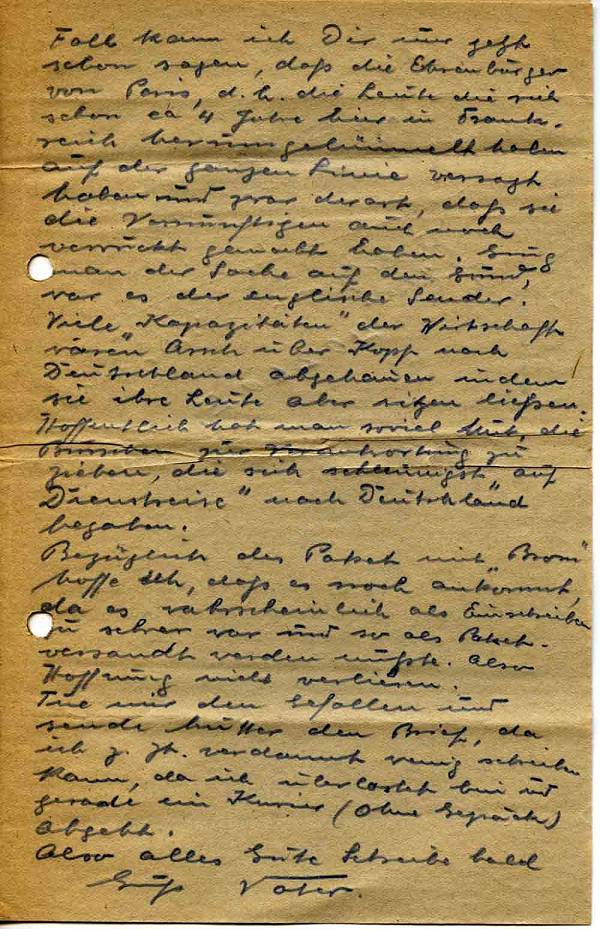 Fall kann ich Dir nur jetzt
schon sagen, daß die Ehrenbürger
von Paris, d.h. die Leute die sich
schon ca 4 Jahre hier in Frank-
reich herumgelümmelt haben
auf der ganzen Linie versagt
haben und zwar derart, daß sie
die Vernünftigen auch noch
verrückt gemacht haben. Ging
man der Sache auf den Grund,
war es der englische Sender.
Viele „Kapazitäten" der Wirtschaft
wären Arsch über Kopf nach
Deutschland abgehauen indem
sie ihre Leute aber sitzen ließen.
Hoffentlich hat man soviel Mut, die
Burschen zur Verantwortung zu
ziehen, die sich schleunigst „auf
Dienstreise" nach Deutschland
begaben.
Bezüglich des Paket mit „Brom"
hoffe ich, daß es noch ankommt,
da es wahrscheinlich als Einschreiben
zu schwer war und so als Paket
versandt werden mußte. Also
Hoffnung nicht verlieren.
Tue mir den Gefallen und
sende Mutter den Brief, da
ich z. Zt. verdammt wenig schreiben
kann, da ich überlastet bin und
gerade ein Kurier (ohne Gepäck)
abgeht.
Also alles Gute Schreibe bald
Gruß Vater.